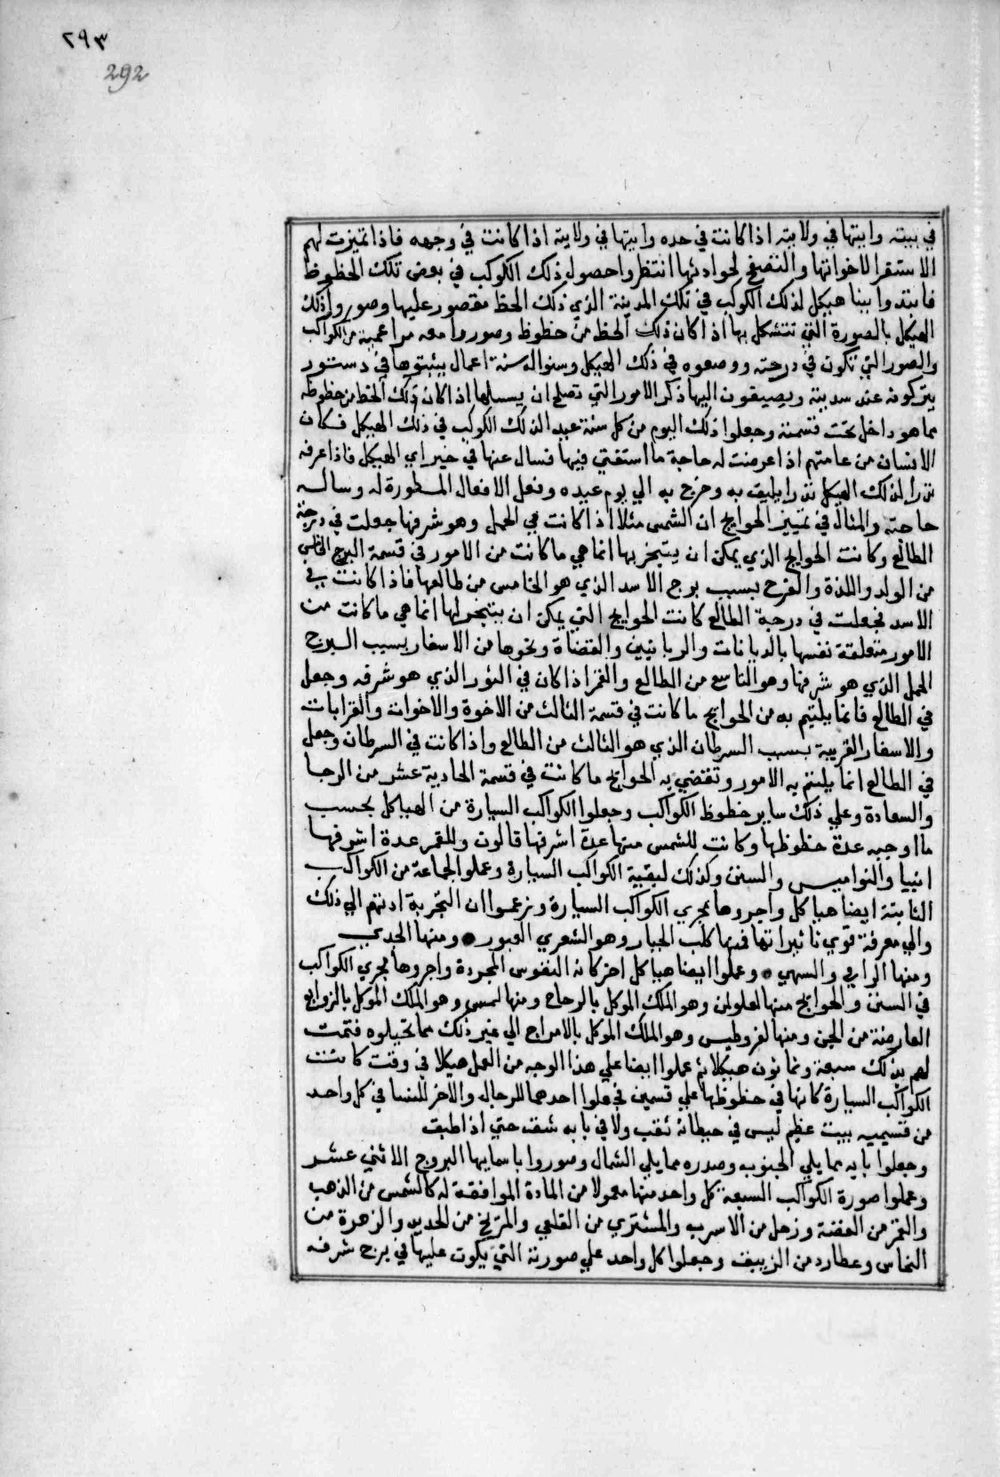 ٢٩٣
292
في بيته وابتها في ولايته اذا كانت في حده وابتها في ولايته اذا كانت في وجهه فاذا تميزت لهم
الاستقرا لاخواتها والتصفح لحوادثها انتظروا حصول ذلك الكوكب في بعض تلك الحظوظ
فابتدوا ببنا هيكل لذلك الكوكب في تلك المدينة الذي ذلك الحظ مقصور عليها وصوروا ذلك
الهيكل بالصورة التي تتشكل بها اذا كان ذلك الحظ من حظوظ وصوروا معه من الكواكب
والصور التي تكون في درجته ووضعوه في ذلك الهيكل وسنوا له سنة اعمال يثبتوها في دستور
يتركونه عند سدينة ويضيفون اليها ذكر الامور التي تصلح ان يسيلها اذا كان ذلك الحظ من حظوظه
مما هو داخل تحت قسمته وجعلوا ذلك اليوم من كل سنة عيد الذلك الكوكب في ذلك الهيكل فكان
الانسان من عامتهم اذا عرضت له حاجة ما استفتي فيها فسال عنها في خير اي الهيكل فاذا عرفه
نذر لذلك الهيكل نذرا يليق به وخرج به الي يوم عيده وفعل الافعال المسطورة له وساله
حاجته والمثال في تمييز الحوايج ان الشمس مثلا اذا كانت في الحمل وهو شرفها جعلت في درجة
الطالع وكانت الحوايج الذي يمكن ان يتنجز بها انما هي ما كانت من الامور في قسمة البرج الخامس
من الولد واللذة والفرح بسبب برج الاسد الذي هو الخامس من طالعها فاذا كانت في
الاسد فجعلت في درجة الطالع كانت الحوايج التي يمكن ان يتنجز لها انما هي ما كانت من
الامور متعلقة نفسها بالديانات والربانيين والقضاة ونحوها من الاسفار بسبب البرج
الحمل الذي هو شرفها وهو التاسع من الطالع والقمر اذا كان في الثور الذي هو شرفه وجعل
في الطالع فانما يلتيم به من الحوايج ما كانت في قسمة الثالث من الاخوة والاخوات والقرابات
والاسفار القريبة بسبب السرطان الذي هو الثالث من الطالع واذا كانت في السرطان وجعل
في الطالع انما يلتيم به الامور وتقتضي به الحوايج ما كانت في قسمة الحادية عشر من الرجا
والسعادة وعلي ذلك ساير حظوظ الكواكب وجعلوا الكواكب السيارة من الهياكل بحسب
ما اوجبه عدة حظوظها وكانت للشمس منها عدة اشرفها قالون وللقمر عدة اشرفها
انبيا والنواميس والسنن وكذلك لبقية الكواكب السيارة وعملوا لجماعة من الكواكب
الثابتة ايضا هياكل واجروها مجري الكواكب السيارة وزعموا ان التجربة ادتهم الي ذلك
والي معرفة قوي تاثيراتها فمنها كلب الجبار وهو الشعري العبور ومنها الجدي
ومنها الرابي والسهي وعملوا ايضا هياكل اخر كانه النفوس المجردة واجروها مجري الكواكب
في السنن والحوايج منها لعلولمن وهو الملك الموكل بالرحاح ومنها لمسس وهو الملك الموكل بالزوابع
العارضة من الجن ومنها لغروطيس وهو الملك الموكل بالامواج الي غير ذلك مما تخيلوه فتمت
لهم بذلك سبعة وثمانون هيكلا ثم عملوا ايضا علي هذا الوجه من العمل هيكلا في وقت كانت
الكواكب السيارة كانها في حظوظها علي قسمين فجعلوا احدهما للرجال والاخر للنسا في كل واحد
من قسميه بيت عظيم ليس في حيطانه ثقب ولا في بابه شق حتي اذا طبق
وجعلوا بابه مما يلي الجنوب وصدره مما يلي الشمال وصوروا باسمايها البروج الاثني عشر
وعملوا صورة الكواكب السبعة كل واحد منها معمولا من المادة الموافقة له كالشمس من الذهب
والقمر من الفضة وزحل من الاسرب والمشتري من القلعي والمريخ من الحديد والزهرة من
النحاس وعطارد من الزيبق وجعلوا كل واحد علي صورته التي يكون عليها في برج شرفه